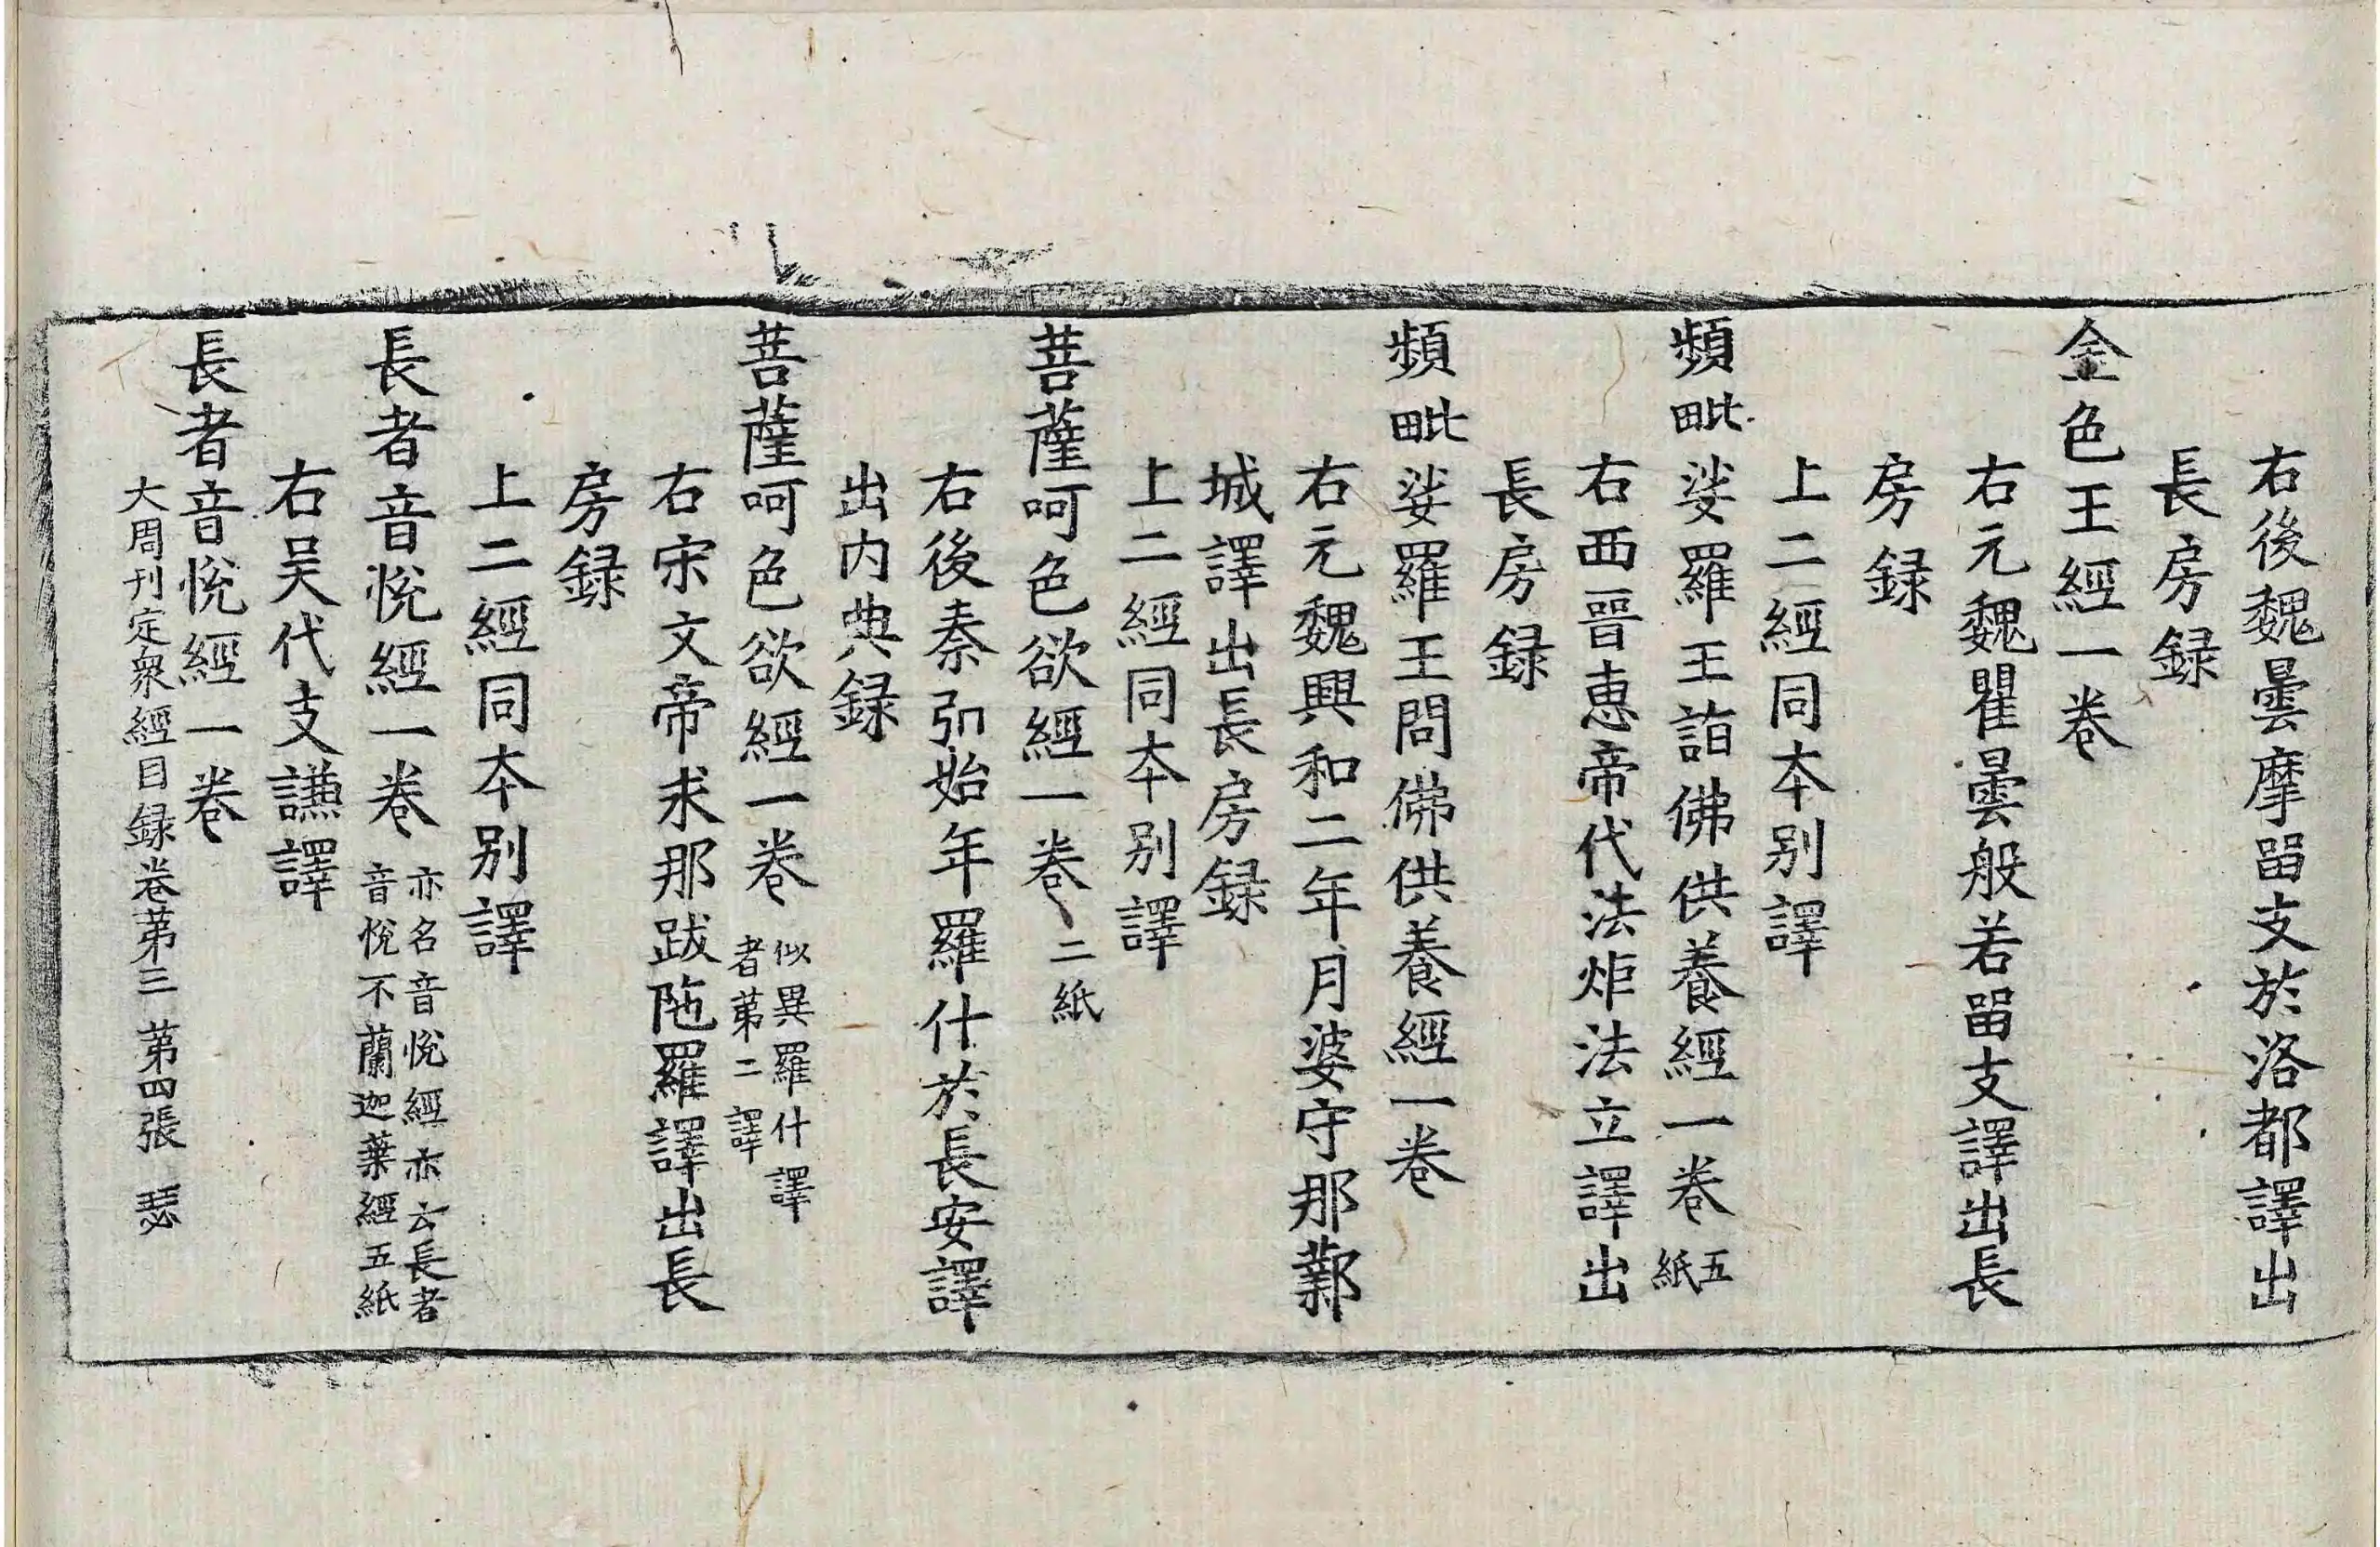 右後魏曇摩留支於洛都譯出
長房録
金色王經一卷
右元魏瞿曇般若留支譯出長
房録
上二經同本别譯
頻毗娑羅王詣佛供養經一卷 五紙
右西晉惠帝代法炬法立譯出
長房録
頻毗娑羅王問佛供養經一卷
右元魏興和二年月婆守那鄴
城譯出長房録
上二經同本别譯
菩薩呵色欲經一卷 二紙
右後秦弘始年羅什於長安譯
出内典録
菩薩呵色欲經一卷 似異羅什譯
者苐二譯
右宋文帝求那跋陁羅譯出長
房録
上二經同本别譯
長者音悅經一卷 亦名音悅經亦云長者
音悅不蘭迦葉經五紙
右吴代支謙譯
長者音悅經一卷
大周刊定衆經目録卷苐三 苐四張 瑟